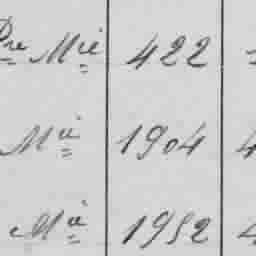 Pre Mie 422
Mie 1904 4
Mie 1952 4